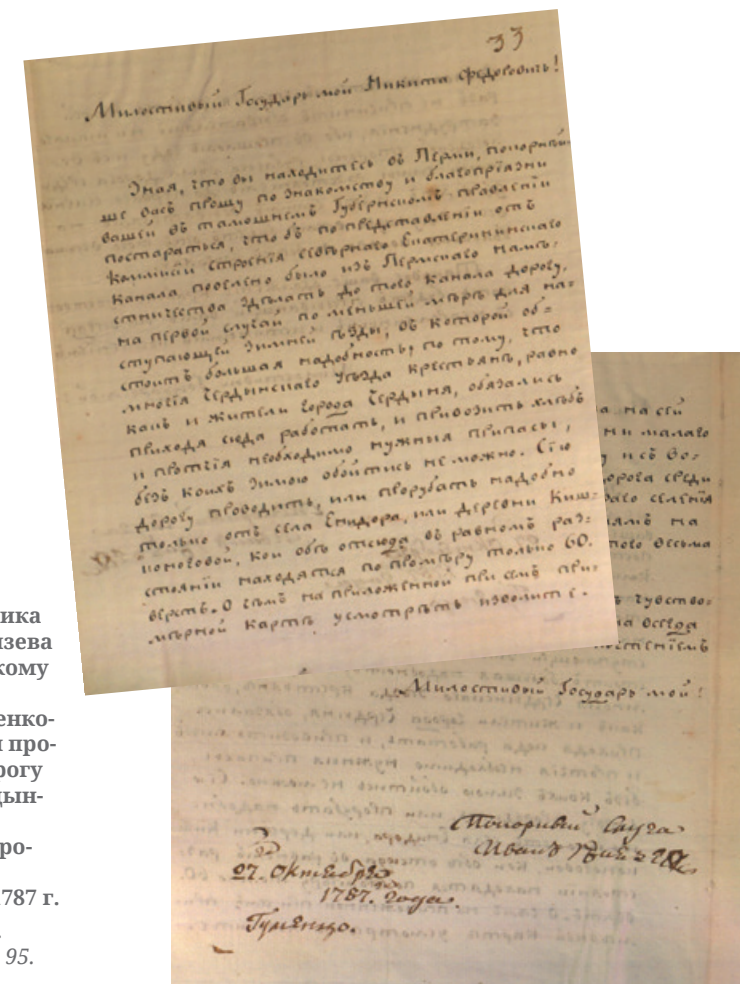 33
Милостивый Государь мой Никита Федоровичь!
Зная, что вы находитесь въ Перми, покорнѣй=
ше васъ прошу по знакомству и благопрїязни
вашей въ тамошнемъ Губернскомъ правленїи
постараться, что бъ по представленїи отъ
Коммисїи строенїя сѣвернаго Екатерининскаго
канала повелено было изъ Пермскаго намѣ-
стничества здѣлать до сего канала дорогу,
на первой случай по меньшей мѣрѣ для на=
ступающей зимней ѣзды, въ которой об=
стоитъ большая надобность, по тому, что
многїя Чердынскаго Уѣзда крестьянъ, равно
какъ и жители города Чердыня, обязались
приходя сюда работать, и привозить хлѣбъ
и протчїя необходимо нужныя припасы,
безъ коихъ зимою обойтись не можно. Сїю
дорогу проводить, или прорубать надобно
только отъ села Гаидора, или деревни Киш=
номовой, кои объ отсюда въ равномъ раз=
стоянїи находятся по промѣру только 60.
верстъ. О чемъ на приложенной при семъ при=
мѣрной картѣ усмотрѣть изволите.
а на сїй
ми малаго
у и съ Во=
дорога среди
селенїя
ямъ на
того весьма
ъ чувство=
на всегда
почтенїемъ
Милостивый Государь мой!
Покорный слуга
Иванъ
27. Октября
1787. года.
Гуменцо.
ика
язева
кому
енко-
и про-
рогу
дын-
ро-
1787 г.
95.